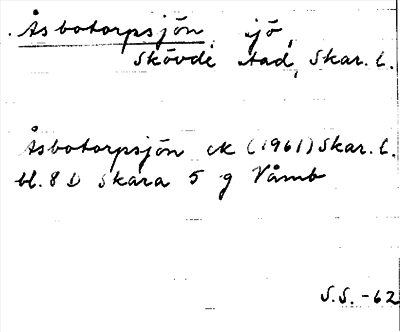 Åsbotorpsjön, sjö,
Skövde stad, Skar. l.
Åsbotorpsjön ek (1961) Skar. l.
bl. 8 D Skara 5 g Våmb
S.S. -62